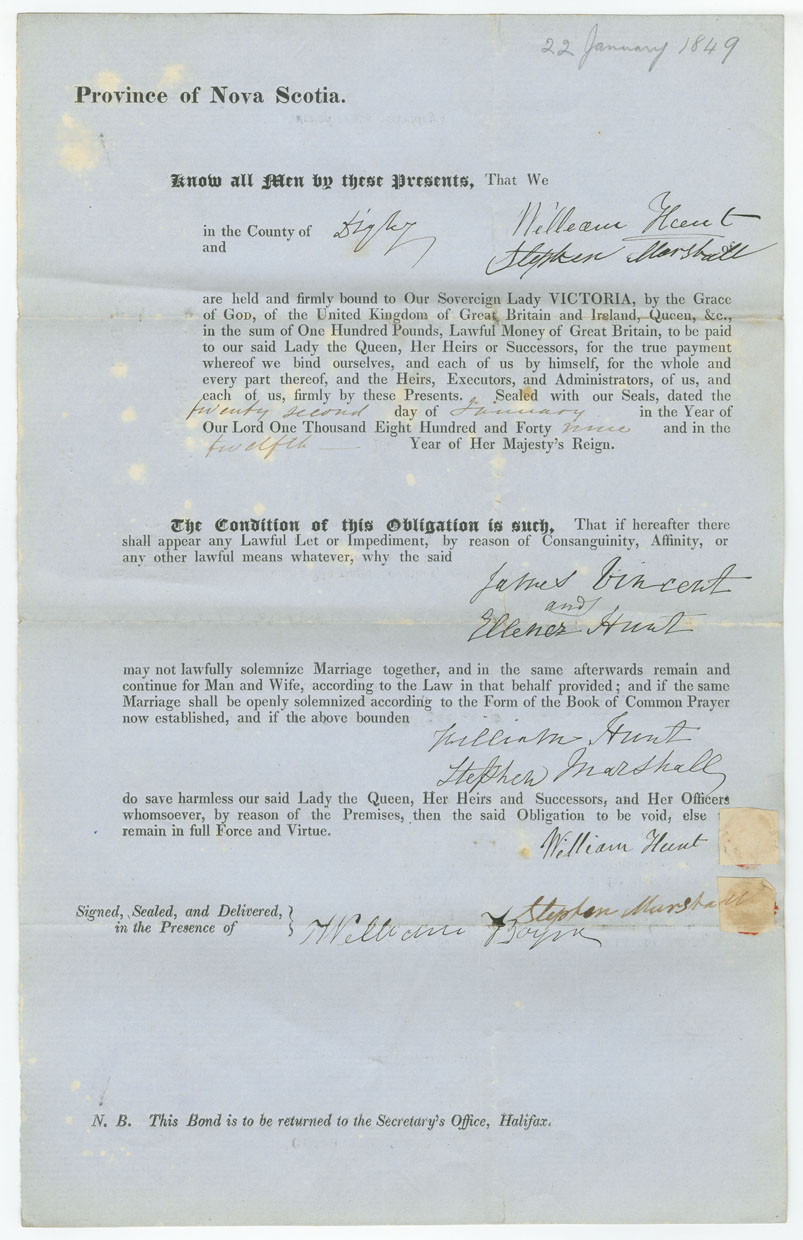 22 January 1849
Province of Nova Scotia.
Know all Men by these Presents, That We
William Hunt
in the County of Digby
and Stephen Marshall
are held and firmly bound to Our Sovereign Lady VICTORIA, by the Grace
of GOD, of the United Kingdom of Great Britain and Ireland, Queen, &c.,
in the sum of One Hundred Pounds, Lawful Money of Great Britain, to be paid
to our said Lady the Queen, Her Heirs or Successors, for the true payment
whereof we bind ourselves, and each of us by himself, for the whole and
every part thereof, and the Heirs, Executors, and Administrators, of us, and
each of us, firmly by these Presents. Sealed with our Seals, dated the
twenty second day of January in the Year of
Our Lord One Thousand Eight Hundred and Forty nine and in the
twelfth Year of Her Majesty's Reign.
The Condition of this Obligation is such, That if hereafter there
shall appear any Lawful Let or Impediment, by reason of Consanguinity, Affinity, or
any other lawful means whatever, why the said
James Vincent
and
Ellener Hunt
may not lawfully solemnize Marriage together, and in the same afterwards remain and
continue for Man and Wife, according to the Law in that behalf provided; and if the same
Marriage shall be openly solemnized according to the Form of the Book of Common Prayer
now established, and if the above bounden
William Hunt
Stephen Marshall
do save harmless our said Lady the Queen, Her Heirs and Successors, and Her Officers
whomsoever, by reason of the Premises, then the said Obligation to be void, else
remain in full Force and Virtue.
William Hunt
Stephen Marshall
Signed, Sealed, and Delivered,
in the Presence of
William
N. B. This Bond is to be returned to the Secretary's Office, Halifax.